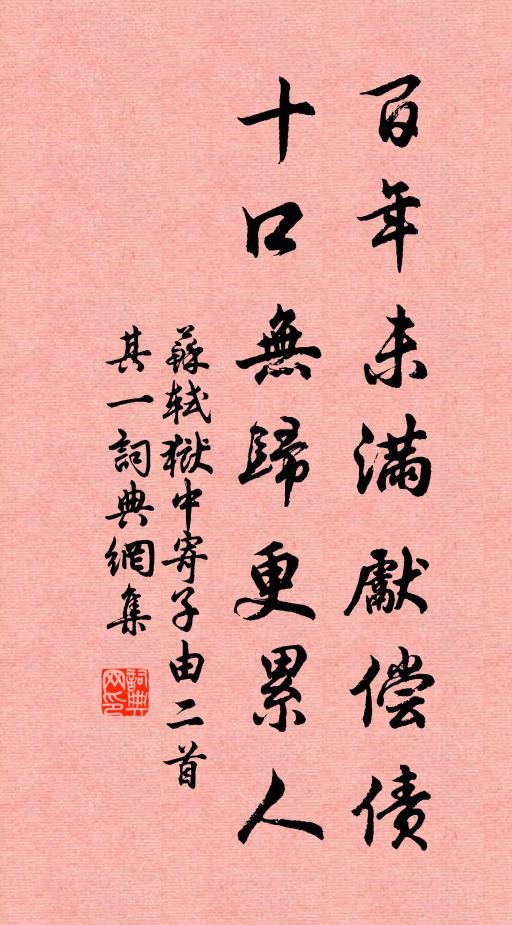 百年未滿獻偿债
十口無歸更累人
蘇轼獄中寄子由二首
其一詞典網集
詞典网印